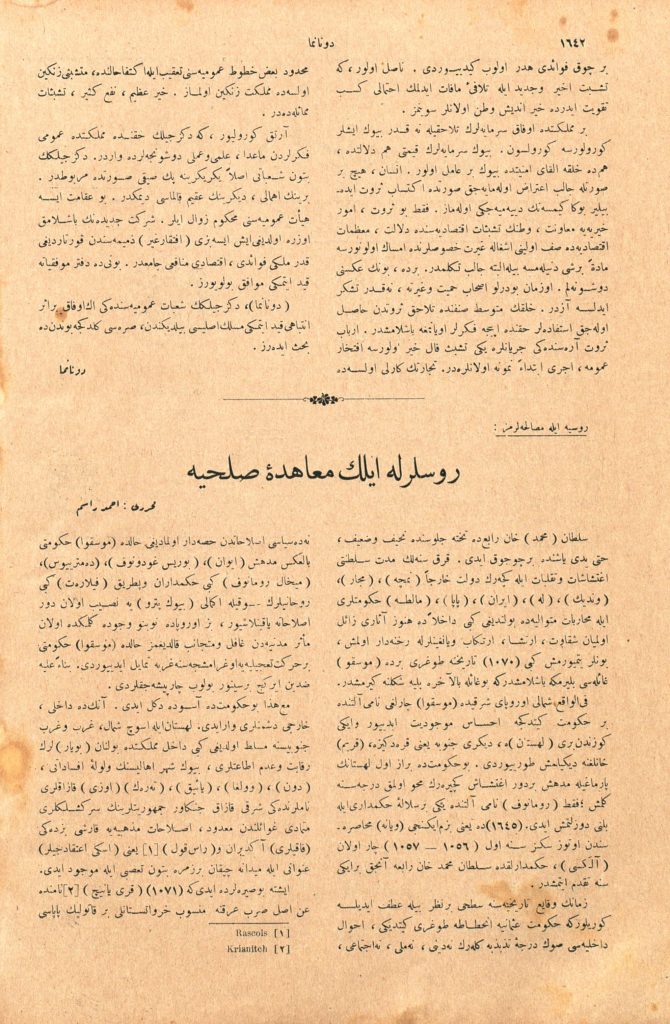 ١٦٤٢
دونانما
بر چوق فوائدی هدر اولوب كیدیبوردی . ناصل اولور ، كه
تشبث اخیر وجدید ایله تلافیٔ مافات ایدلمك احتمالی كسب
تقویت ایدرده خیر اندیش وطن اولانلر سونمز .
بر مملكتده اوفاق سرمایه‌لرك تلاحقیله نه قدر بیوك ایشلر
كورولورسه كورولسون . بیوك سرمایه‌لرك قیمتی هم دلالتده ،
هم‌ده خلقه القای امنیتده بیوك بر عامل اولور . انسان ، هیچ بر
صورتله جالب اعتراض اولمایه‌جق صورتده اكتساب ثروت ایده‌
بیلیر بوكا كیمسه‌نك دییه‌جكی اوله‌ماز . فقط بو ثروت ، امور
خیریه‌یه معاونت ، وطنك تشبثات اقتصادیه‌سنده دلالت ، معظمات
اقتصادیه‌ده صف اولینی اشغاله غیرت خصوصلرنده امساك اولونورسه
مادةً برشی دینیله‌مسه بیله البته جالب تكلمدر . برده ، بونك عكسنی
دوشونه‌لم . اوزمان بودرلو اصحاب حمیت وغیرته ، نه‌قدر تشكر
ایدلسه آزدر . خلقك متوسط صنفنده تلاحق ثروتدن حاصل
اوله‌جق استفاده‌لر حقنده ایجه فكرلر اویانمغه باشلامشدر . ارباب
ثروت آره‌سنده‌كی جریانلره یكی تشبث فال خیر اولورسه افتخار
عمومه ، اجری ابتداءً نمونه اولانلره‌در . تجارتك كارلی اولسه‌ده
محدود بعض خطوط عمومیه‌سنی تعقیب ایله اكتفا حالنده ، متشبثی زنكین
اولسه‌ده مملكت زنكین اولماز . خیر عظیم ، نفع كثیر ، تشبثات
مماثله‌ده‌در .
آرتق كورولیور ، كه دكزجیلك حقنده مملكتده عمومی
فكرلردن ماعدا ، علمی وعملی دوشونجه‌لرده واردر . دكزجیلكك
بتون شعباتی اصلاً یكدیكرینه پك صیقی صورتده مربوطدر .
برینك اهمالی ، دیكرینك عقیم قالماسی دیمكدر . بو عقامت ایسه
هیأت عمومیه‌سنی محكوم زوال ایلر . شركت جدیده‌نك باشلامق
اوزره اولدیغی ایش ایسه بزی ( افتقار غیر ) ذمیمه‌سندن قورتاردیغی
قدر ملكی فوائدی ، اقتصادی منافعی جامعدر . بونی‌ده دفتر موفقیاته
قید ایتمكی موافق بولویورز .
( دونانما ) ، دكزجیلكك شعبات عمومیه‌سنده‌كی اك اوفاق براثر
انتباهی قید ایتمكی مسلك اصلیسی بیلدیكندن ، صره‌سی كلدكجه بوندن ده
بحث ایده‌رز .
دونانما
روسیه ایله مصالحه‌لرمز :
روسلرله ایلك معاهدهٔ صلحیه
محرری : احمد راسم
سلطان ( محمد ) خان رابع‌ده تخته جلوسنده نحیف وضعیف ،
حتی یدی یاشنده برچوجوق ایدی . قرق سنه‌لك مدت سلطنتی
اغتشاشات وتقلبات ایله كچه‌رك دولت خارجاً ( نمچه ) ، ( مجار ) ،
( وندیك ) ، ( له ) ، ( ایران ) ، ( پاپا ) ، ( مالطه ) حكومتلری
ایله محاربات متوالیه‌ده بولندیغی كبی داخلاًده هنوز آثاری زائل
اولمیان شقاوت ، ارتشا ، ارتكاب ویاغینلرله رخنه‌دار اولمش ،
بونلر یتمیورمش كبی ( ١٠٧٠ ) تاریخنه طوغری برده ( موسقو )
غائله‌سی بلیرمكه باشلامشدركه بوغائله بالآخره بلیه شكلنه كیرمشدر .
فی‌الواقع شمالی اوروپای شرقیده ( موسقوا ) چارلغی نامی آلتنده
بر حكومت كیتدكجه احساس موجودیت ایدییور وایكی
كوزندن بری ( لهستان ) ه ، دیكری جنوبه یعنی قره‌دكزه ، ( قریم )
خانلغنه دیكیلمش طورییوردی . بوحكومت‌ده براز اول لهستانك
پارماغیله مدهش بردور اغتشاش كچیره‌رك محو اولمق درجه‌سنه
كلمش ؛ فقط ( رومانوف ) نامی آلتنده یكی برسلالهٔ حكمداری ایله
یلنی دوزلتمش ایدی . ( 1645 ) ده یعنی بزم ایكنجی ( ویانه ) محاصره‌ـ
سندن اوتوز سكز سنه اول ( ١٠٥٦ — ١٠٥٧ ) چار اولان
( آلكسی ) ، حكمدارلقده سلطان محمد خان رابعه آنجق برایكی
سنه تقدم ایتمشدر .
زمانك وقایع تاریخیه‌سنه سطحی برنظر بیله عطف ایدیلسه
كوریلوركه حكومت عثمانیه انحطاطه طوغری كیتدیكی ، احوال
داخلیه‌سی صوك درجهٔ تذبذبه كله‌رك نه‌دینی ، نه‌ملی ، نه‌اجتماعی ،
نه‌ده سیاسی اصلاحاتدن حصه‌دار اولمادیغی حالده ( موسقوا ) حكومتی
بالعكس مدهش ( ایوان ) ، ( بوریس غودونوف ) ، ( ده‌متریوس ) ،
( میخال رومانوف ) كبی حكمداران وبطریق ( فیلارەت ) كبی
روحانیلرك سوقیله اكمالی ( بیوك پترو ) یه نصیب اولان دور
اصلاحاته یاقینلاشیور ، ز اوروپاده نوبنو وجوده كلمكده اولان
مآثر مدنیه‌دن غافل ومتجانب قالدیغمز حالده ( موسقوا ) حكومتی
برحركت تعجیلیه‌یه اوغرامشجه‌سنه غربه تمایل ایدییوردی . بناءً علیه
ضدین ایركیج برسینور بولوب چارپیشه‌جقلردی .
مع‌هذا بوحكومت‌ده آسوده دكل ایدی . آنك‌ده داخلی ،
خارجی دشمنلری وارایدی . لهستان ایله اسوج شمال ، غربی وغرب
جنوبیسنه مسلط اولدیغی كبی داخل مملكتده بولنان ( بویار ) لرك
رقابت وعدم اطاعتلری ، بیوك شهر اهالیسنك ولولهٔ افساداتی ،
( دون ) ، ( وولغا ) ، ( یائیق ) ، ( ته‌ره‌ك ) ( اوزی ) قازاقلری
ناملرنده‌كی شرقی قازاق جنكاور جمهوریتلرینك سركشلكلری
متمادی غوائلندن معدود ، اصلاحات مذهبیه‌یه قارشی بزده‌كی
( قافیلری ) آكدیران و ( راس‌قول ) [١] یعنی ( اسكی اعتقادجیلر )
عنوانی ایله میدانه چیقان برزمره‌ بتون تعصبی ایله موجود ایدی .
ایشته بوصیره‌لرده ایدی‌كه ( ١٠٧١ ) ( قری یانیچ ) [٢] نامنده
عن اصل صرب عرقنه منسوب خرواتستانلی بر قاتولیك پاپاسی
Rascols [١]
Krianitch [٢]